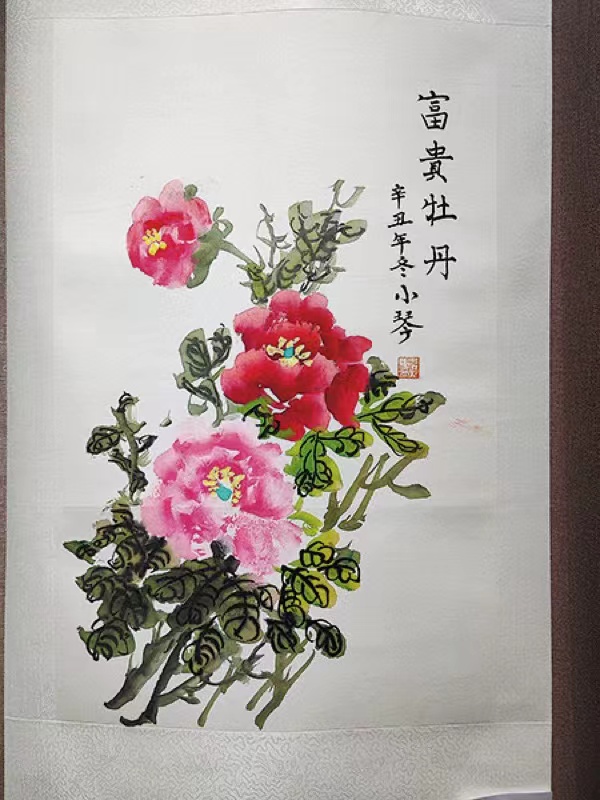 富貴牡丹
辛丑年冬小琴